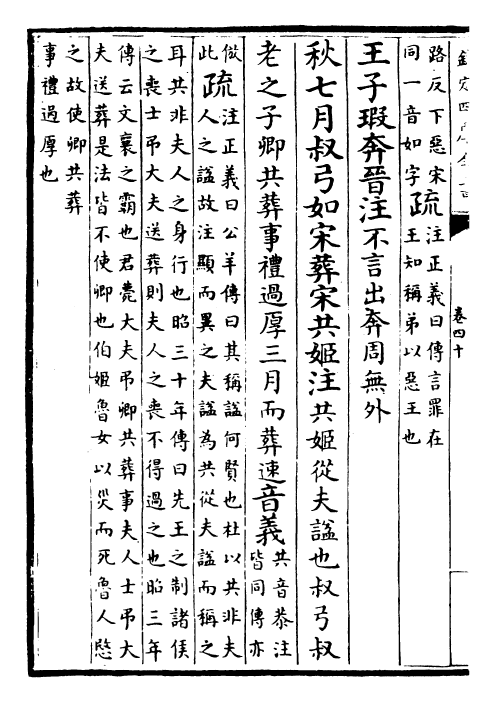 欽定四庫全書
卷四十
路反下惡宋
同一音如字
疏
注正義曰傳言罪在
王知稱弟以惡王也
王子瑕奔晉注不言出奔周無外
秋七月叔弓如宋葬宋共姬注共姬從夫諡也叔弓叔
老之子卿共葬事禮過厚三月而葬速音義
共音恭注
皆同傳亦
倣
此
疏
注正義曰公羊傳曰其稱諡何賢也杜以共非夫
人之諡故注顯而異之夫諡為共從夫諡而稱之
耳共非夫人之身行也昭三十年傳曰先王之制諸侯
之喪士弔大夫送葬則夫人之喪不得過之也昭三年
傳云文襄之霸也君薨大夫弔卿共葬事夫人士弔大
夫送葬是法皆不使卿也伯姬魯女以災而死魯人愍
之故使卿共葬
事禮過厚也